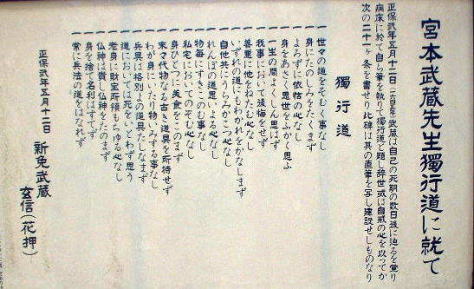 宮本武蔵先生獨行道に就て
正保弐年五月十二日 武蔵は自己の死期の数日後に迫るを覚り
病床に於て自ら筆を執りて獨行道と題し辞世或は自戒の心を以ってか
次の二十一ヶ条を書せり此碑は其の直筆を写し建設せしものなり
獨行道
一 世々の道をそむく事なし
一 身にたのしみをたくまず
一 よろずに依怙の心なし
一 身をあさく思世をふかく思ふ
一 一生の間よくしん思はず
一 我事において後悔をせず
一 善悪に他をねたむ心なし
一 いずれの道にもわかれをかなしまず
一 自他共にうらみかこつ心なし
一 れんぼの道思いよる心なし
一 物毎にすきこのむ事なし
一 私宅においてのぞむ心なし
一 身ひとつに美食をこのまず
一 末々代物なる古き道具を所持せず
一 わが身にいたり物いみする事なし
一 兵具は格別よの道具たしなまず
一 道においては死をいとわず思う
一 老身に財宝所領もちゆる心なし
一 仏神は貴し仏神をたのまず
一 身を捨て名利はすてず
一 常に兵法の道をはなれず
正保弐年五月十二日
新免武蔵
玄信(花押)